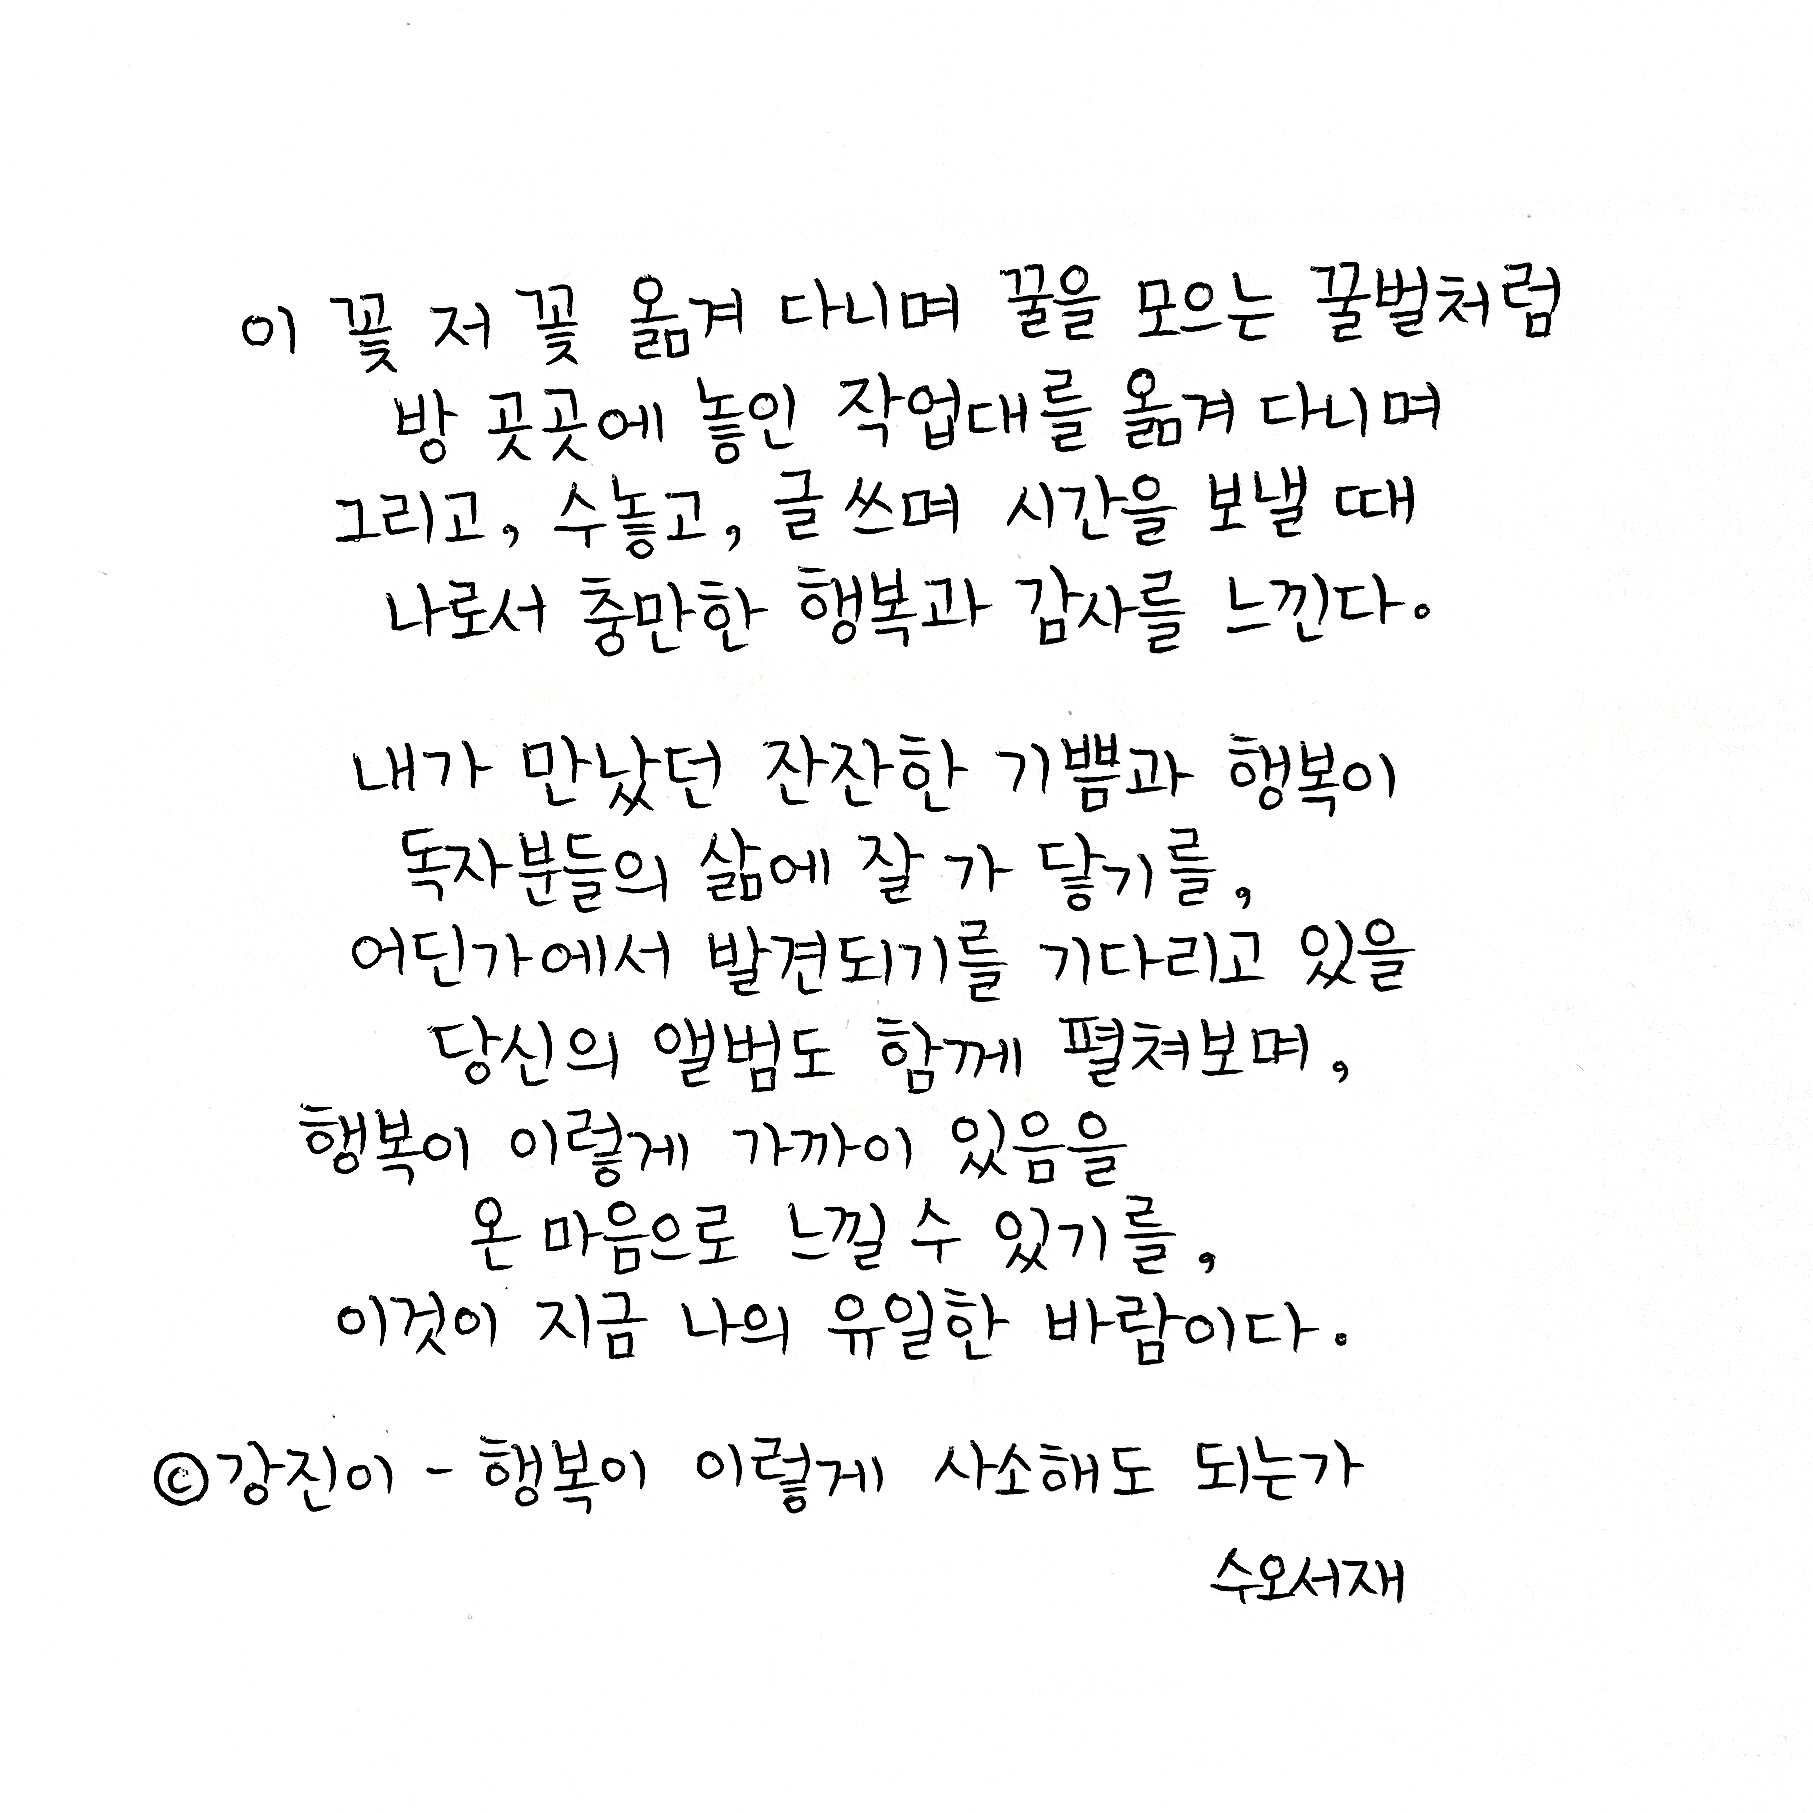 이 꽃 저 꽃 옮겨 다니며 꿀을 모으는 꿀벌처럼
방 곳곳에 놓인 작업대를 옮겨 다니며
그리고, 수놓고, 글 쓰며 시간을 보낼 때
나로서 충만한 행복과 감사를 느낀다.
내가 만났던 잔잔한 기쁨과 행복이
독자분들의 삶에 잘 가 닿기를,
어딘가에서 발견되기를 기다리고 있을
당신의 앨범도 함께 펼쳐보며,
행복이 이렇게 가까이 있음을
온 마음으로 느낄 수 있기를,
이것이 지금 나의 유일한 바람이다.
©강진이 - 행복이 이렇게 사소해도 되는가
수오서재